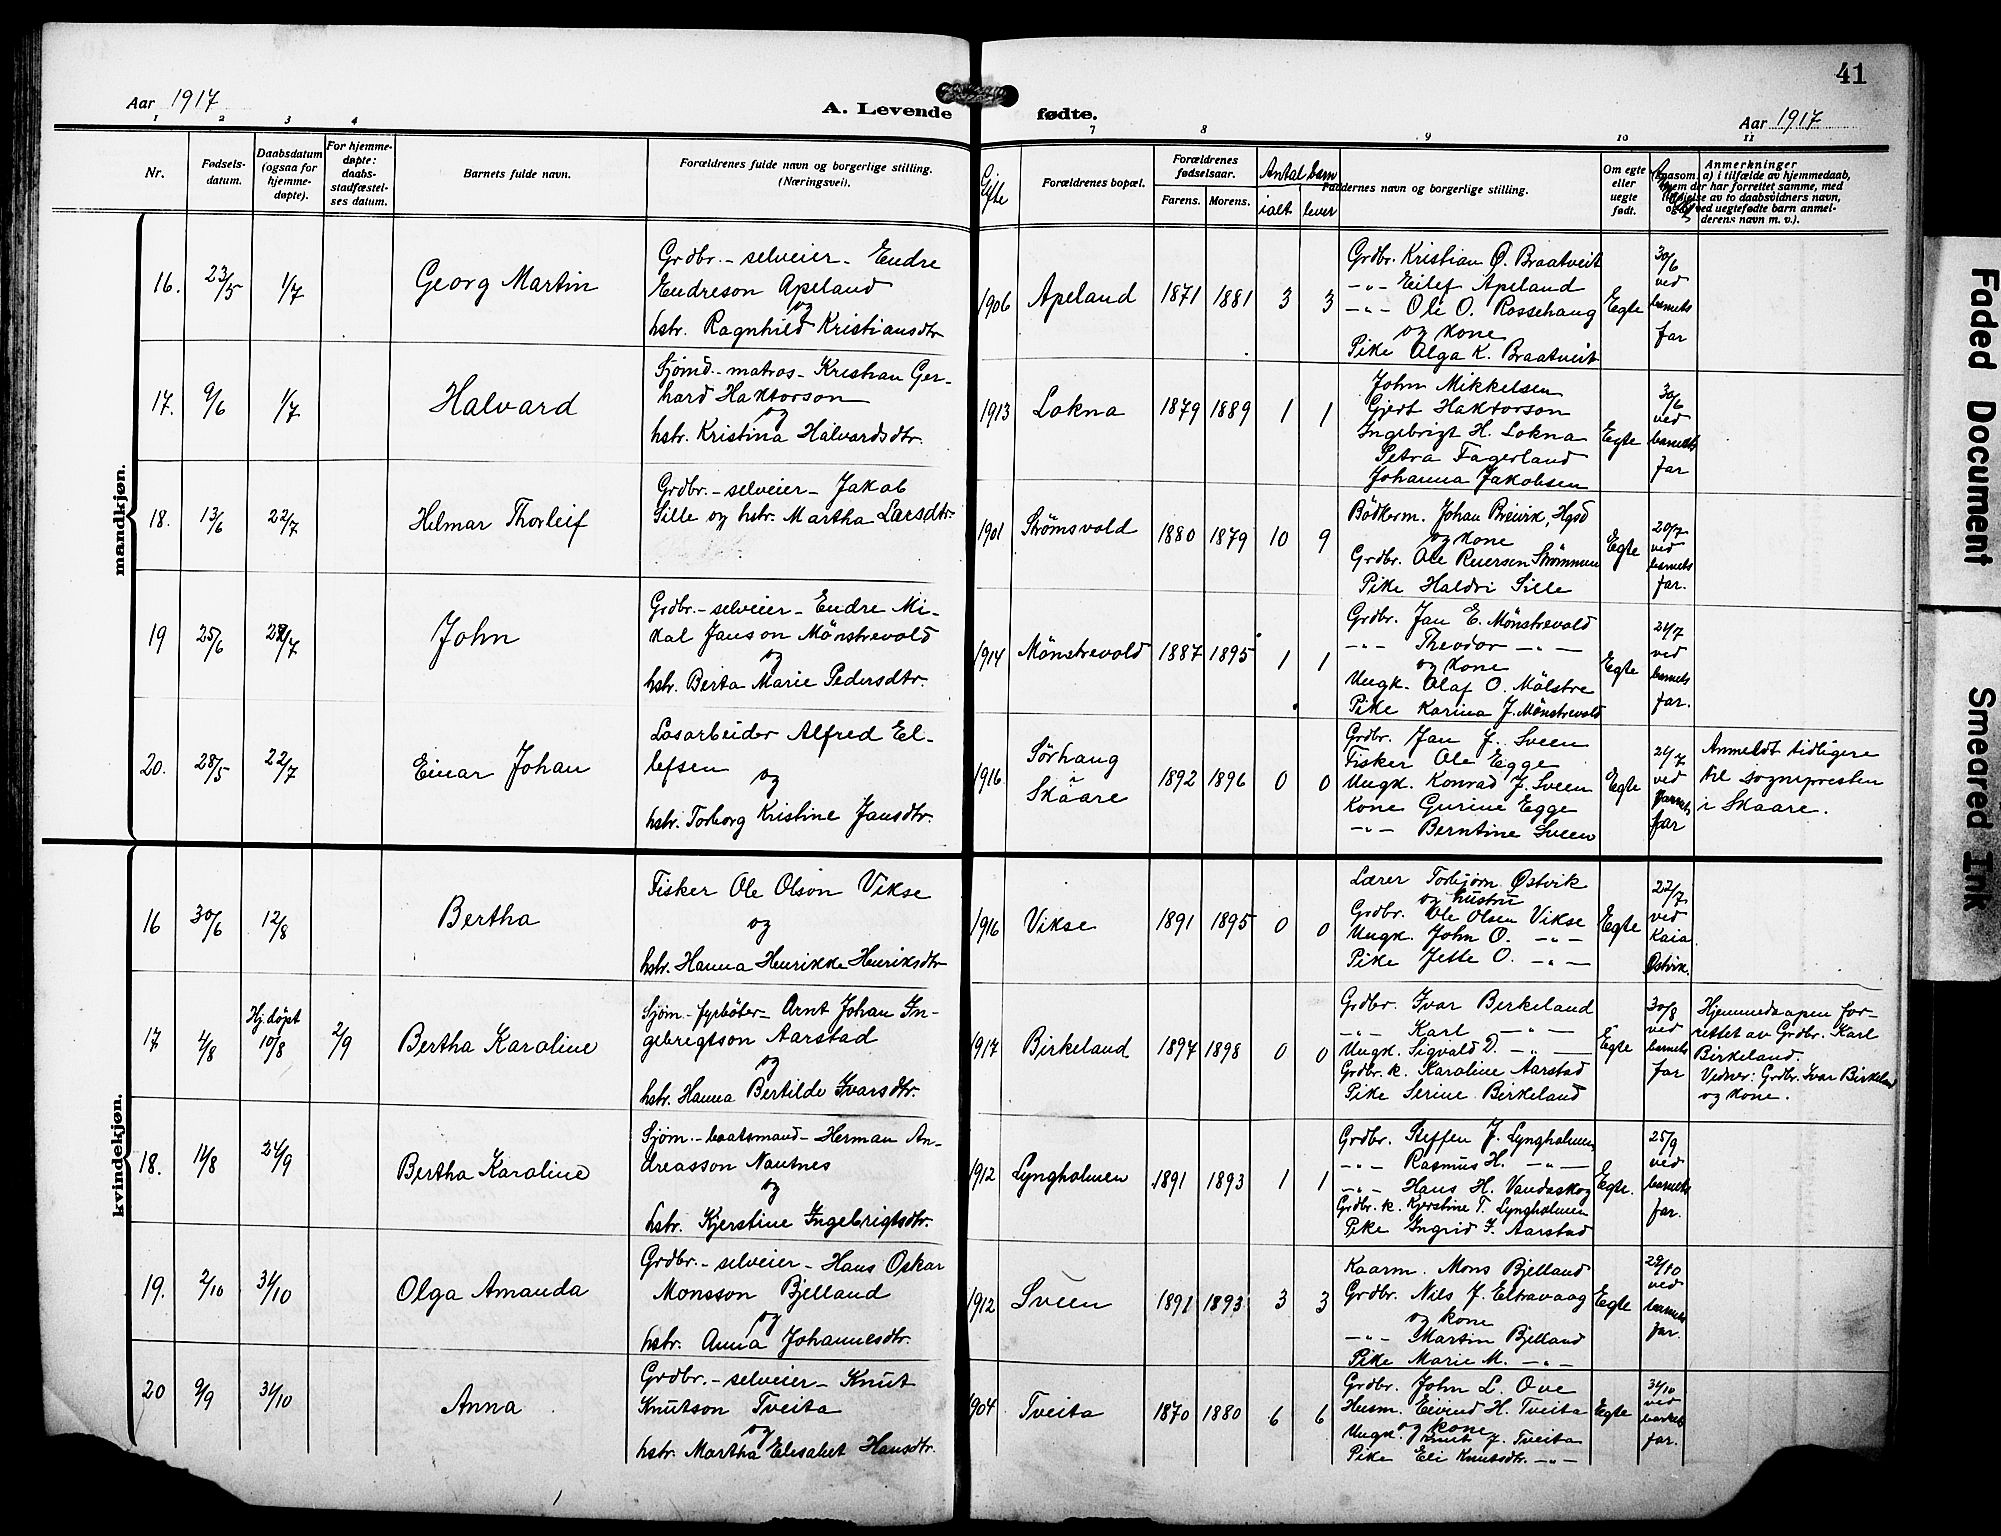 41
Aar 1917
A. Levende fødte.
Aar 1917
1 2 3 4 7 8 9 10 11
Nr.
Fødsels-
datum.
Daabsdatum
(ogsaa for
hjemme-
døpte).
For hjemme-
døpte:
daabs-
stadfæstel-
ses datum.
Barnets fulde navn.
Forældrenes fulde navn og borgerlige stilling.
(Næringsvei).
Gifte
Forældrenes bopæl.
Forældrenes
fødselsaar.
Farens. Morens.
Antal barn
ialt lever
Faddernes navn og borgerlige stilling.
Om egte
eller
uegte
født.
Anmerkninger
saasom: a) i tilfælde av hjemmedaab,
hvem der har forrettet samme, med
tilføielse av to daabsvidners navn,
og b) ved uegtefødte barn anmel-
derens navn m. v.).
mandkjøn.
16. 23/5 1/7
Georg Martin
Grdbr. - selveier - Endre
Endreson Apeland
og
hstr. Ragnhild Kristiansdtr
1906 Apeland 1871 1881 3 3
Grdbr. Kristian Ø. Braatveit
-"- Eilef Apeland
-"- Ole O. Rossehaug
og kone
Pike Alga K. Braatveit
Egte
30/6
ved
barnets
far
17. 9/6 1/7
Halvard
Sjømd. - matros - Kristian Ger-
hard Haktorson
og
hstr. Kristina Halvardsdtr.
1913 Lokna 1879 1889 1 1
John Mikkelsen
Gjert Haktorson
Ingebrigt H. Lokna
Petra Fagerland
Johanna Jakobsen
Egte
30/6
ved
barnets
far
18. 13/6 22/7
Helmar Thorleif
Grdbr. - selveier - Jakob
Sille og hstr. Martha Larsdtr.
1901 Strømsvold 1880 1879 10 9
Bødkerm. Johan Breivik, Hgsd
og kone
Grdbr. Ole Reiersen Strømmen
Pike Haldri Sille
Egte
20/7
ved
barnets
far.
19 25/6 22/7
John
Grdbr. - selveier - Endre Mi-
kal Janson Mønstrevold
og
hstr. Berta Marie Pedersdtr.
1914 Mønstrevold 1887 1895 1 1
Grdbr. Jan E. Mønstrevold
-"- Theodor -"-
og kone
Ungk. Olaf O. Mølstre
Pike Karina J. Mønstrevold
Egte
21/7
ved
barnets
far.
20. 28/5 22/7
Einar Johan
Løsarbeider Alfred El-
lefsen
og
hstr. Torborg Kristine Jansdtr.
1916 Sørhaug
i
Skaare
1892 1896 0 0
Grdbr. Jan J. Sveen
Fisker Ole Egge
Ungk. Konrad J. Sveen
Kone Gurine Egge
-"- Berntine Sveen
Egte
21/7
ved
barnets
far
Anmeldt tidligere
til sognepresten
i Skaare.
kvindekjøn.
16 30/6 12/8
Bertha
Fisker Ole Olson Vikse
og
hstr. Hanna Henrikke Henriksdtr
1916 Vikse 1891 1895 0 0
Lærer Torbjørn Østvik
og hustru
Grdbr. Ole Olsen Vikse
Ungk. John O. -"-
Pike Jette O. -"-
Egte
22/7
ved
Kaia
Østvik.
17 4/8 Hj. døpt
10/8 2/9
Bertha Karoline
Sjøm. - fyrbøter - Arnt Johan In-
gebrigtson Aarstad
og
hstr. Hanna Bertilde Ivarsdtr.
1917 Birkeland 1897 1898 0 0
Grdbr. Ivar Birkeland
-"- Karl -"-
Ungk. Sigvald D. -"-
Grdbr. k. Karoline Aarstad
Pike Serine Birkeland
Egte
30/8
ved
barnets
far
Hjemmedaapen for-
rettet av Grdbr. Karl
Birkeland.
Vidner: Grdbr. Ivar Birkeland
og kone.
18. 14/8 24/9
Bertha Karoline
Sjøm. - baatsmand - Herman An-
dreasson Nautnes
og
hstr. Kjerstine Ingebrigtsdtr.
1912 Lyngholmen 1891 1893 1 1
Grdbr. Steffen J. Lyngholmen
-"- Rasmus H. -"-
-"- Hans H. Vandaskog
Grdbr. k. Kjerstine T. Lyngholmen
Pike Ingrid I. Aarstad
Egte.
25/9
ved
barnets
far.
19. 2/10 31/10
Olga Amanda
Grdbr. - selveier - Hans Oskar
Monsson Bjelland
og
hstr. Anna Johannesdtr.
1912 Sveen 1891 1893 3 3
Kaarm. Mons Bjelland
Grdbr. Nils J. Eltravaag
og kone
-"- Martin Bjelland
Pike Marie M. -"-
Egte
29/10
ved
barnets
far.
20 9/9 31/10
Anna
Grdbr. - selveier - Knut
Knutson Tveita
og
hstr. Martha Elisabet Hansdtr.
1904 Tveita 1870 1880 6 6
Grdbr. John L. Ove
Husm. Eivind H. Tveita
og kone
Ungk. Knut J. Tveita
Pike Eli Knutsdtr. -"-
Egte
31/10
ved
barnets
far.
Faded Document
Smeared Ink